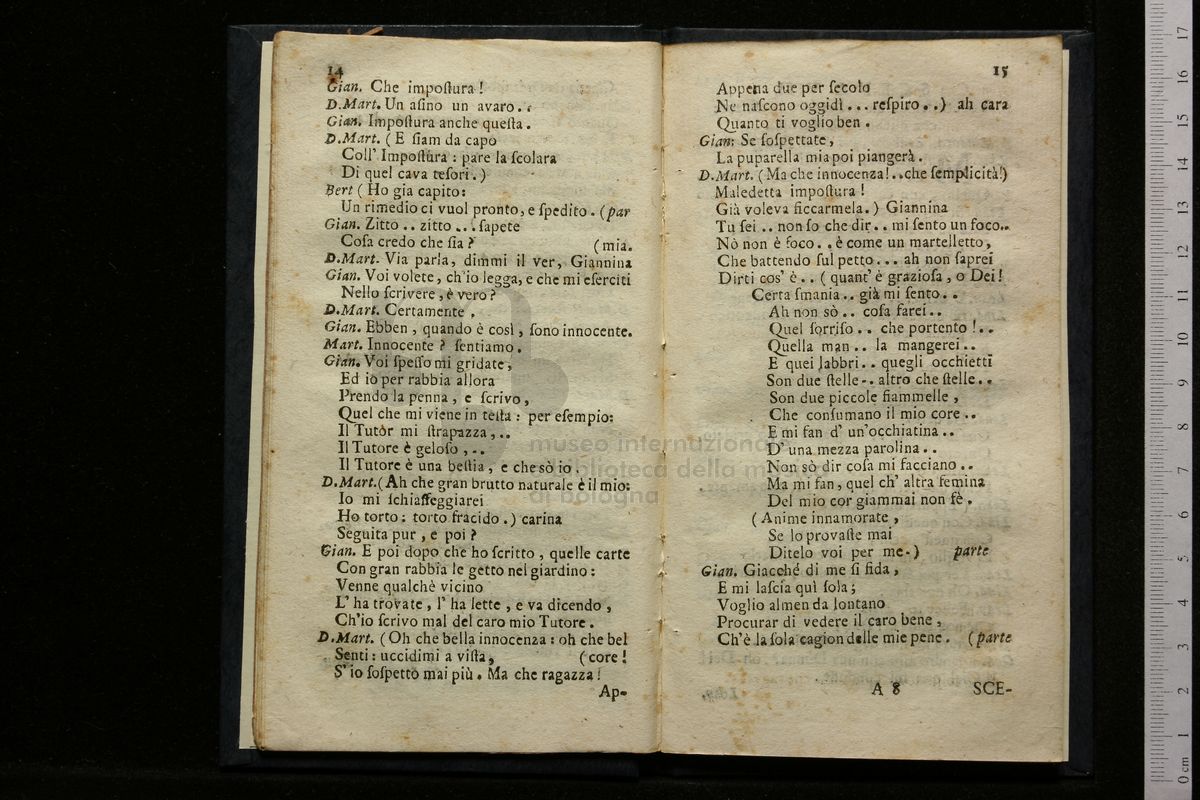 14
Gian. Che impoſtura!
D.Mart. Un aſino un avaro..
Gian. Impoſtura anche queſta.
D.Mart. (E ſiam da capo
Coll' Impoſtura: pare la ſcolara
Di quel cava teſori.)
Bert (Ho gia capito:
Un rimedio ci vuol pronto, e ſpedito. (par
Gian. Zitto.. zitto... ſapete
Coſa credo che ſia? (mia.
D.Mart. Via parla, dimmi il ver, Giannina
Gian. Voi volete, ch'io legga, e che mi eſerciti
Nello ſcrivere, è vero?
D.Mart. Certamente,
Gian. Ebben, quando è così, ſono innocente.
Mart. Innocente? ſentiamo.
Gian. Voi ſpeſſo mi gridate,
Ed io per rabbia allora
Prendo la penna, e ſcrivo,
Quel che mi viene in teſta: per eſempio:
Il Tutòr mi ſtrapazza,..
Il Tutore è geloſo,..
Il Tutore è una beſtia, e che sò io.
D.Mart.(Ah che gran brutto naturale è il mio:
Io mi ſchiaffeggiarei
Ho torto: torto fracido.) carina
Seguita pur, e poi?
Gian. E poi dopo che ho ſcritto, quelle carte
Con gran rabbia le getto nel giardino:
Venne qualchè vicino
L' ha trovate, l' ha lette, e va dicendo,
Ch'io ſcrivo mal del caro mio Tutore.
D.Mart. (Oh che bella innocenza: oh che bel
Senti: uccidimi a viſta, (core!
S' io ſoſpetto mai più. Ma che ragazza!
Ap-
15
Appena due per ſecolo
Ne naſcono oggidì... reſpiro..) ah cara
Quanto ti voglio ben.
Gian: Se ſoſpettate,
La puparella mia poi piangerà.
D.Mart. (Ma che innocenza!..che ſemplicità!)
Maledetta impoſtura!
Già voleva ficcarmela.) Giannina
Tu ſei.. non ſo che dir.. mi ſento un foco..
Nò non è foco.. è come un martelletto,
Che battendo ſul petto... ah non ſaprei
Dirti cos' è.. (quant' è grazioſa, o Dei!
Certa ſmania.. già mi ſento..
Ah non sò.. coſa farei..
Quel ſorriſo.. che portento!..
Quella man.. la mangerei..
E quei labbri.. quegli occhietti
Son due ſtelle.. altro che ſtelle..
Son due piccole fiammelle,
Che conſumano il mio core..
E mi fan d' un'occhiatina..
D' una mezza parolina..
Non sò dir coſa mi facciano..
Ma mi fan, quel ch' altra femina
Del mio cor giammai non fè.
(Anime innamorate,
Se lo provaſte mai
Ditelo voi per me.) parte
Gian. Giacché di me ſi fida,
E mi laſcia quì ſola;
Voglio almen da lontano
Procurar di vedere il caro bene,
Ch'è la ſola cagion delle mie pene. (parte
A 8 SCE-
museo internazionale
biblioteca della m
di bologna